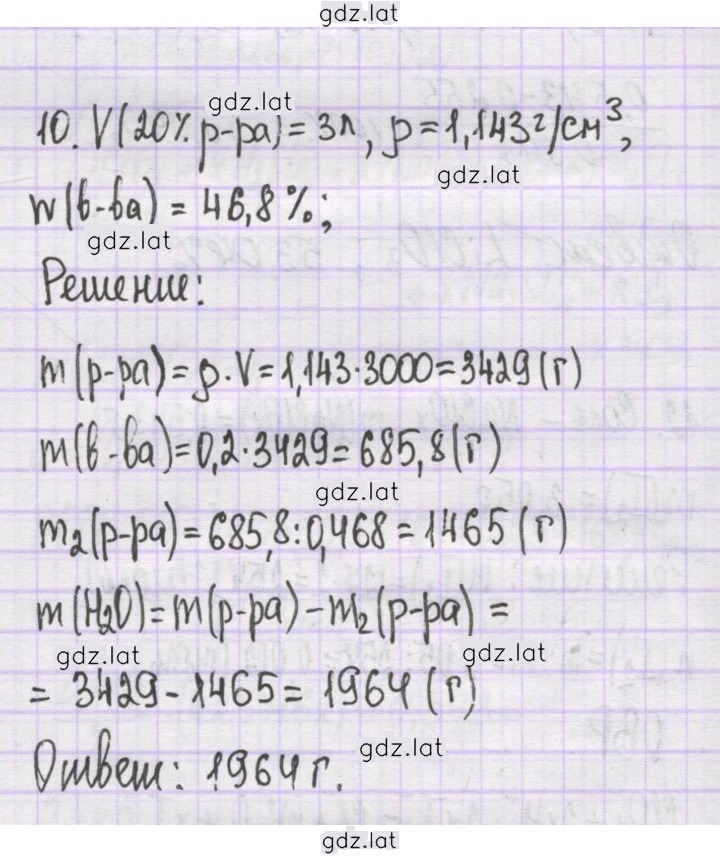 gdz.lat
gdz.lat
10. V(20% р-ра) = 3л, ρ = 1,143 г/см³,
gdz.lat
w(в-ва) = 46,8 %;
gdz.lat
Решение:
m(р-ра) = ρ·V = 1,143·3000 = 3429 (г)
m(в-ва) = 0,2·3429 = 685,8 (г)
gdz.lat
m₂(р-ра) = 685,8:0,468 = 1465 (г)
m(H₂O) = m(р-ра) – m₂(р-ра) =
gdz.lat gdz.lat
= 3429 – 1465 = 1964 (г)
gdz.lat
Ответ: 1964 г.
gdz.lat